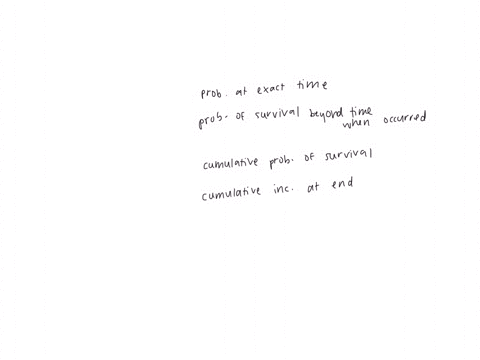 prob. at exact time
prob. of survival beyond time
when occurred
cumulative prob. of survival
cumulative inc. at end